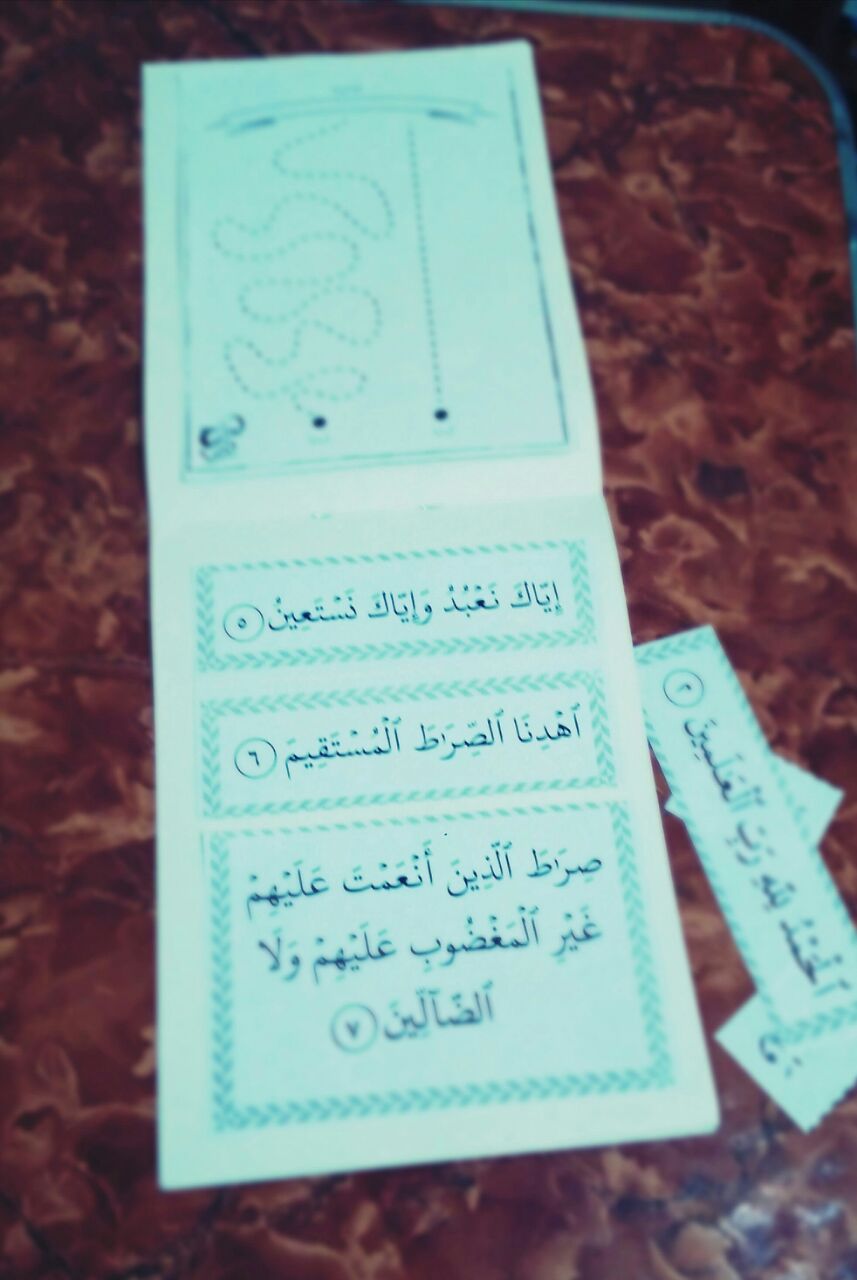 إِيَّاكَ نَعْبُدُ وَإِيَّاكَ نَسْتَعِينُ ٥
ٱهْدِنَا ٱلصِّرَٰطَ ٱلْمُسْتَقِيمَ ٦
صِرَٰطَ ٱلَّذِينَ أَنْعَمْتَ عَلَيْهِمْ
غَيْرِ ٱلْمَغْضُوبِ عَلَيْهِمْ وَلَا
ٱلضَّآلِّينَ ٧
ٱلْحَمْدُ لِلَّهِ رَبِّ ٱلْعَٰلَمِينَ ٢